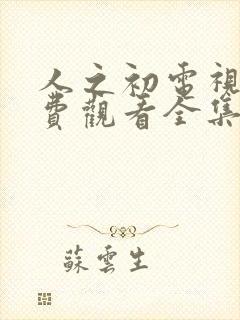 人之初電視
費觀看全集
蘇雲生